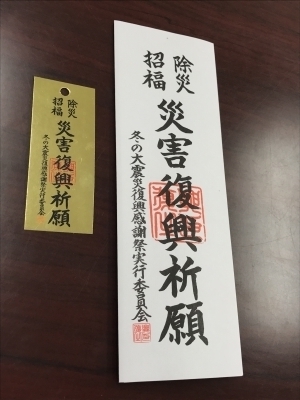 除災
招福
災害復興祈願
冬の大震災復興感謝祭実行委員会
除災
招福
災害復興祈願
冬の大震災復興感謝祭実行委員会